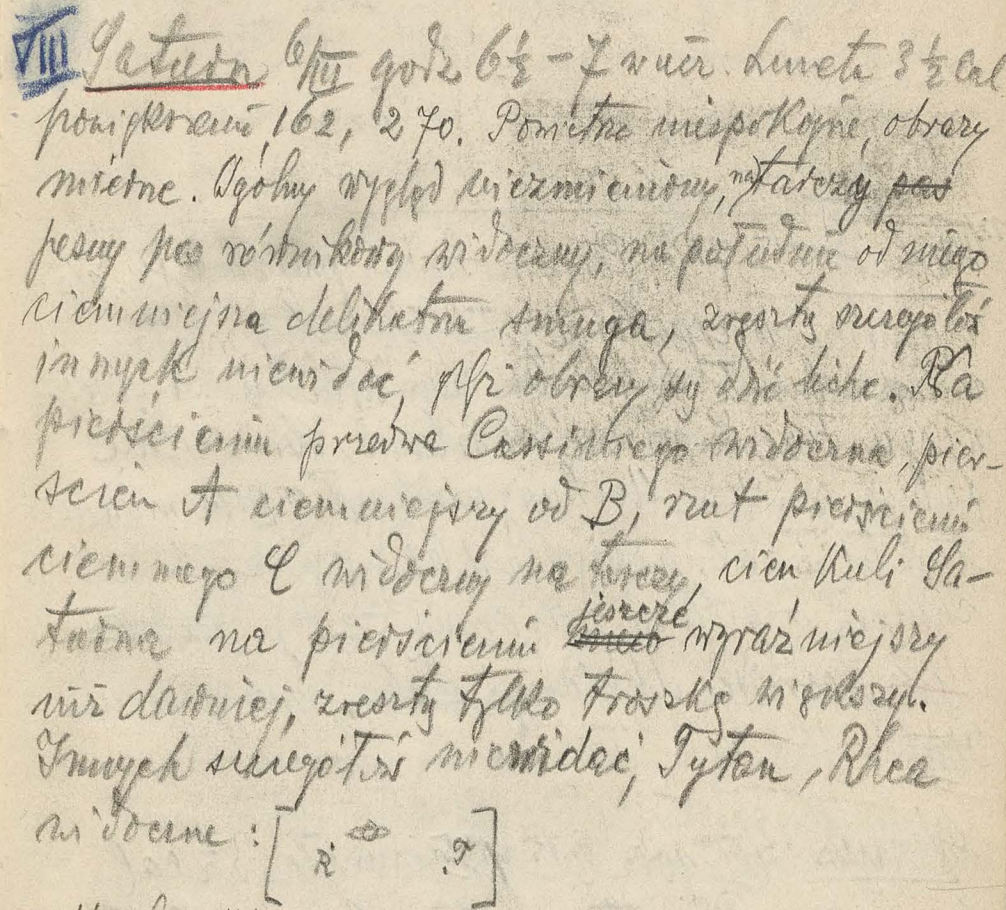 VIII Saturn 6/III godz 6½ – 7 wiecz. Luneta 3½ cal
powiększenie 162, 270. Powietrze niespokojne, obrazy
mierne. Ogólny wygląd niezmieniony, na tarczy pas
jasny pas równikowy widoczny, na południe od niego
ciemniejsza delikatna smuga, zresztą szczegółów
innych niewidać, gdyż obrazy są dziś liche. Na
pierścieniu przerwa Cassiniego widoczna, pier-
scień A ciemniejszy od B, rzut pierścienia
ciemnego C widoczny na tarczy, cień Kuli Sa-
turna na pierścieniu jeszcze wyraźniejszy
niż dawniej, zresztą tylko troszkę większy.
Innych szczegółów niewidać, Tytan, Rhea
widoczne : [ R T ]